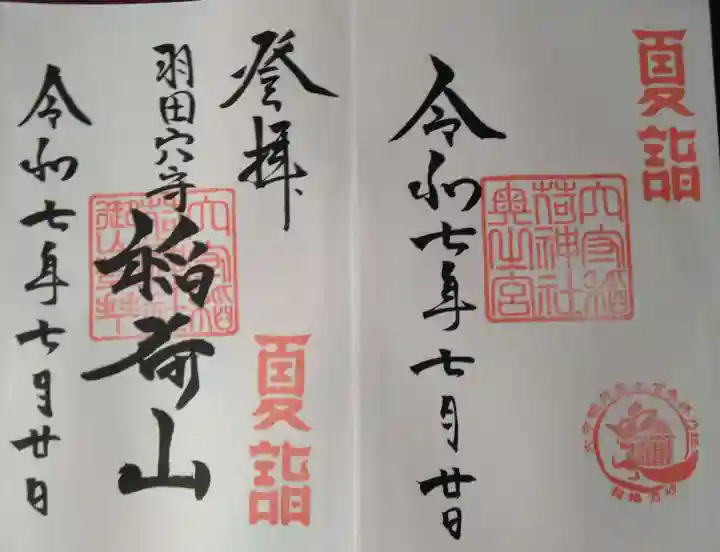 夏詣
令和七年七月廿日
穴守稲
荷神社
奥之宮
登拝
羽田穴守
稲荷山
夏詣
令和七年七月廿日